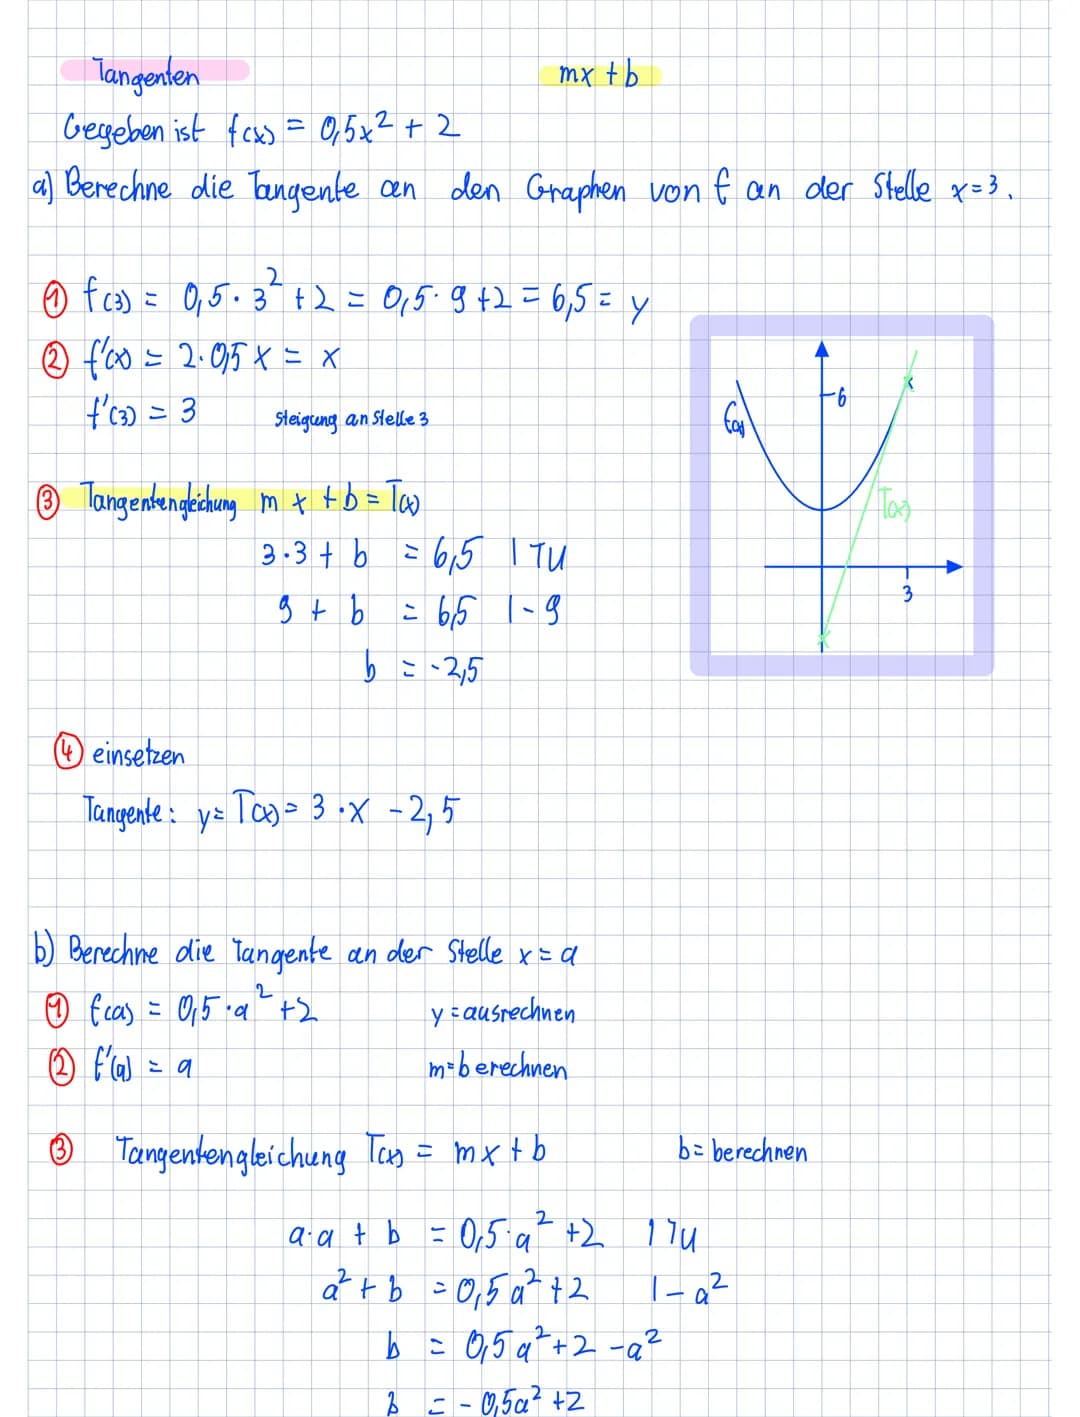 Tangenten
mx + b
Gegeben ist f(x) = 0,5x² + 2
a) Berechne die Tangente an den Graphen von f an der Stelle x=3.
① f(3) = 0,5 · 3² + 2 = 0,5 · 9 + 2 = 6,5 = y
② f'(x) = 2 · 0,5 x = x
f'(3) = 3 Steigung an Stelle 3
6
f(x)
T(x)
3
③ Tangentengleichung m x + b = T(x)
3·3 + b = 6,5 | TU
9 + b = 6,5 | - 9
b = -2,5
④ einsetzen
Tangente: y = T(x) = 3 · x - 2,5
b) Berechne die Tangente an der Stelle x = a
① f(a) = 0,5 · a² + 2 y = ausrechnen
② f'(a) = a m = berechnen
③ Tangentengleichung T(x) = mx + b b = berechnen
a·a + b = 0,5·a² + 2 | TU
a² + b = 0,5a² + 2 | - a²
b = 0,5a² + 2 - a²
b = - 0,5a² + 2